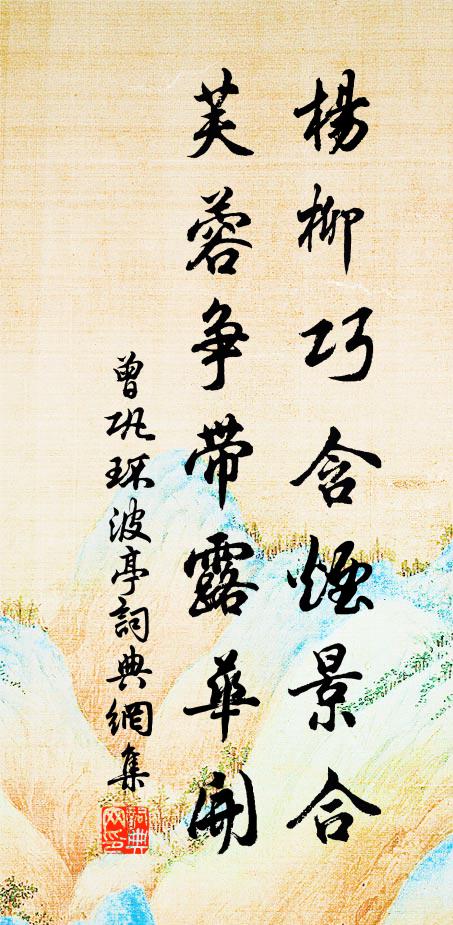 楊柳巧含煙景合
芙蓉争帶露華開
曾巩環波亭詞典網集
詞典
网印